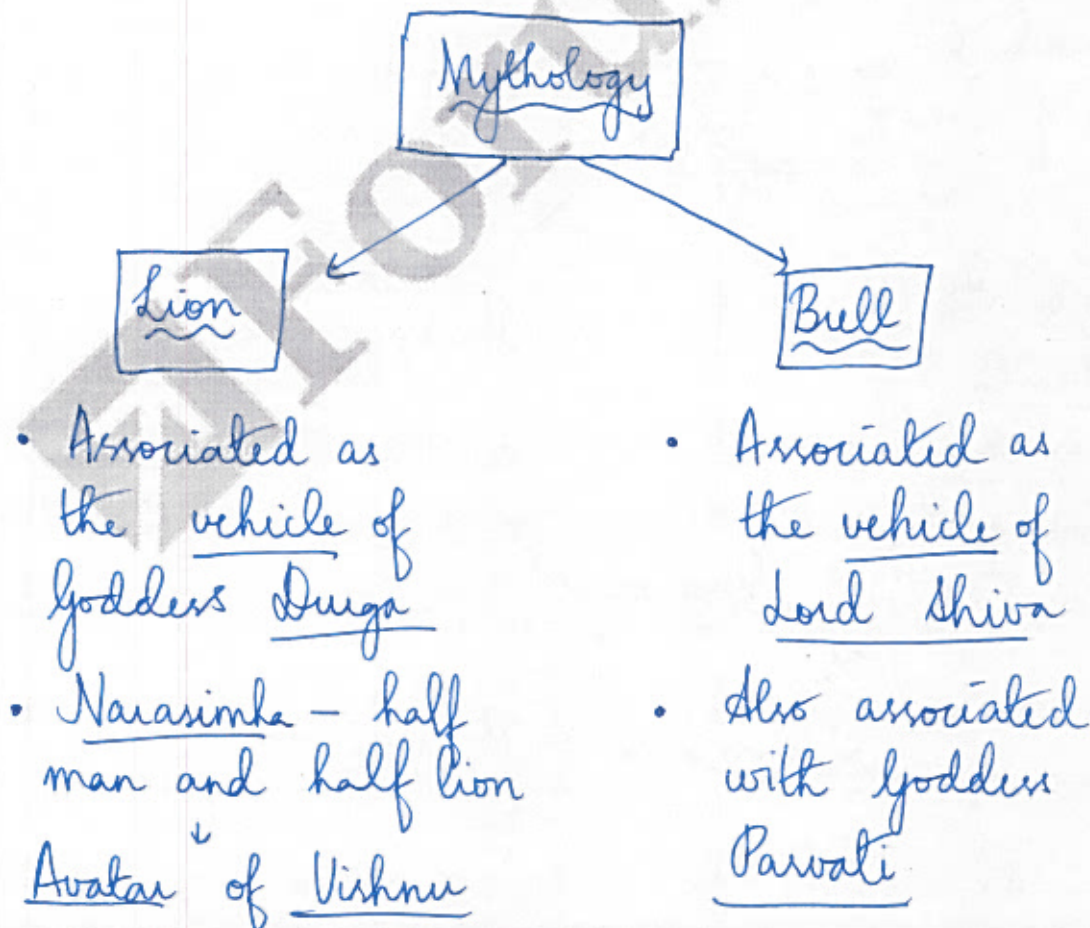 Mythology
Lion
• Associated as
the vehicle of
Goddess Durga
• Narasimha – half
man and half lion
↓
Avatar of Vishnu
Bull
• Associated as
the vehicle of
Lord Shiva
• Also associated
with Goddess
Parvati